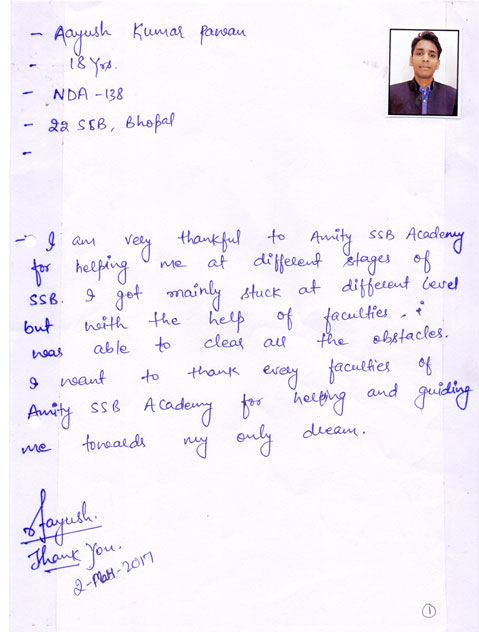 - Aayush Kumar Pawan
- 18 Yrs.
- NDA - 138
- 22 SSB, Bhopal
-
- I am very thankful to Amity SSB Academy
for helping me at different stages of
SSB. I got mainly stuck at different level
but with the help of faculties. i
was able to clear all the obstacles.
I want to thank every faculties of
Amity SSB Academy for helping and guiding
me towards my only dream.
Aayush.
Thank You.
2-Mar-2017
1